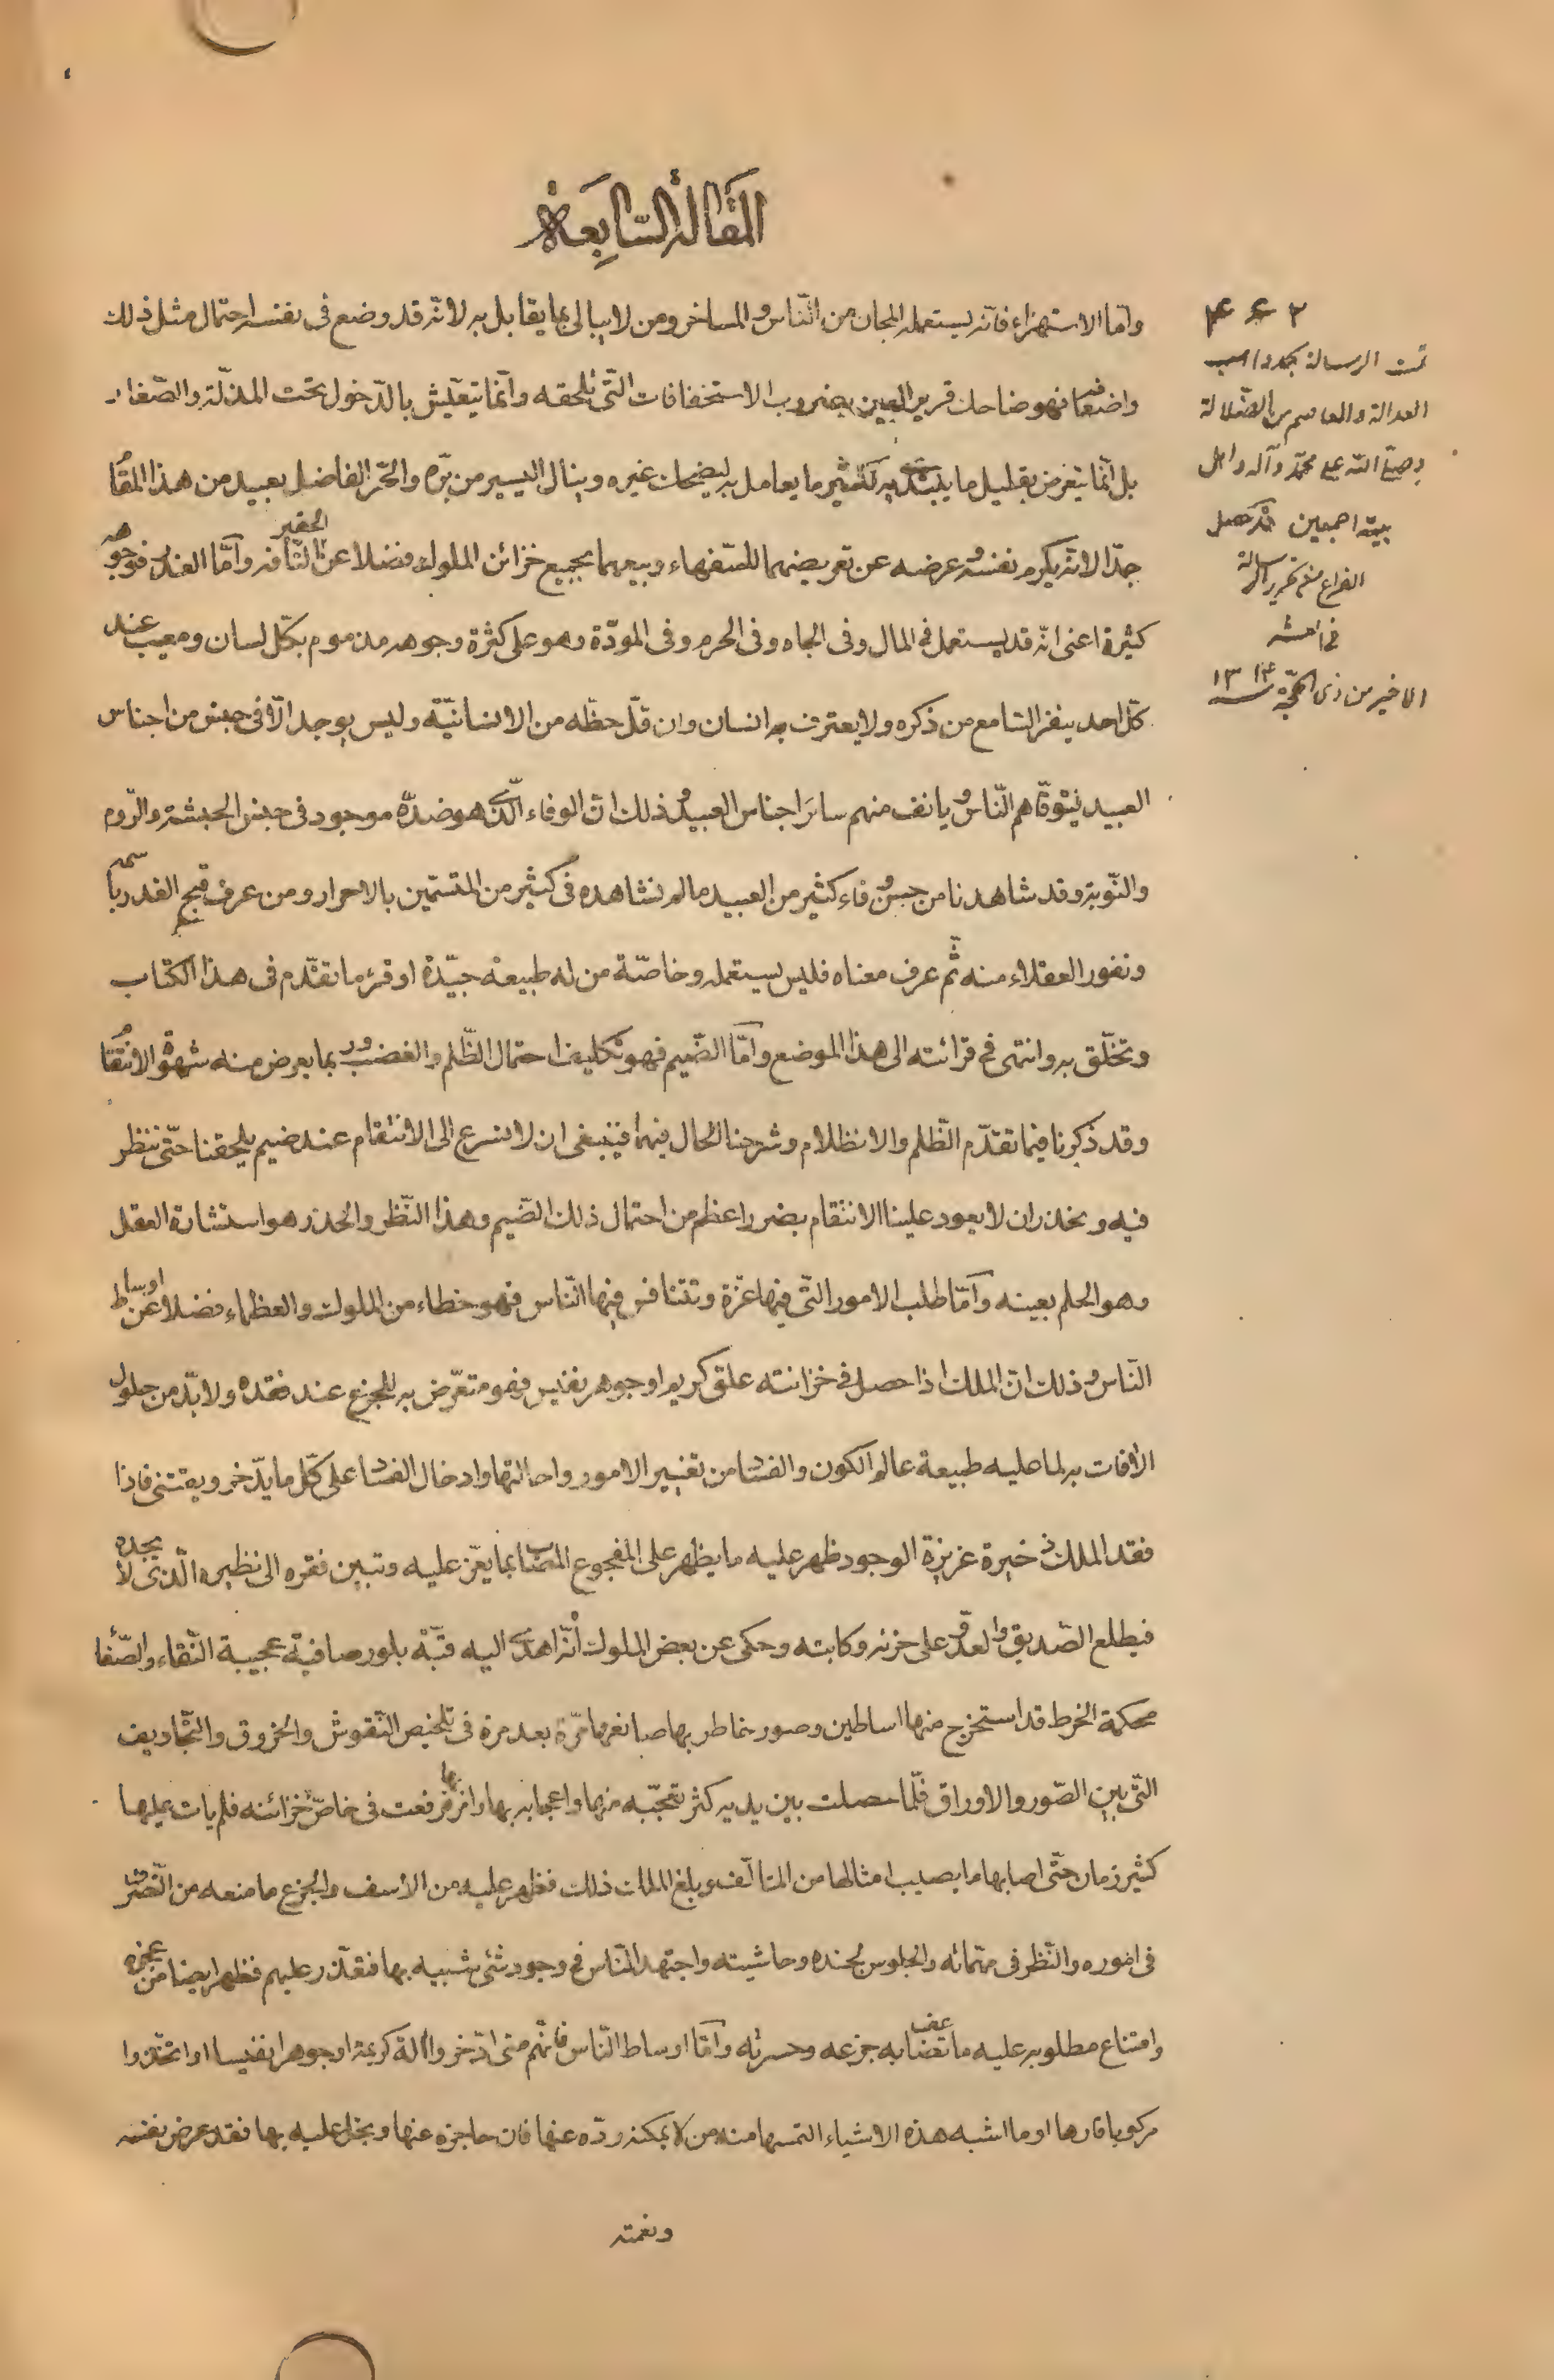 المقالة السابعة
وامّا الاستهزاء فانّه يستعمله المجان من النّاس و المساخر ومن لا يبالى بما يقابل به لانّه قد وضع فى نفسه احتمال مثل ذلك
واضعافه فهو ضاحك قرير العين بضروب الاستخفافات الّتى تلحقه وانّما يتعيّش بالدّخول تحت المذلّة والصّغار
بل انّما يتعرض بقليل ما يبتدى به لكثير ما يعامل به ليضحك غيره وينال اليسير من برّه والحرّ الفاضل بعيد من هذا المقام
جدّا لانّه يكرم نفسه و عرضه عن تعريضهما للسّفهاء وبيعهما بجميع خزائن الملوك فضلا عن الحقير التّافه وامّا الغدر فوجوهه
كثيرة اعنى انّه قد يستعمل فى المال وفى الجاه وفى الحرم وفى المودّة وهو على كثرة وجوهه مذموم بكلّ لسان ومعيب عند
كلّ احد ينفر السّامع من ذكره ولا يعترف به انسان وان قلّ حظّه من الانسانيّة وليس يوجد الّا فى جنس من اجناس
العبيد يتوقّاهم النّاس و يانف منهم سائر اجناس العبيد و ذلك انّ الوفاء الّذى هو ضدّه موجود فى جنس الحبشة والرّوم
والنّوبة وقد شاهدنا من حسن وفاء كثير من العبيد ما لم نشاهده فى كثير من المتسمّين بالاحرار ومن عرف قبح الغدر باسمه
ونفور العقلاء منه ثمّ عرف معناه فليس يستعمله وخاصّة من له طبيعة جيّدة او قرء ما تقدّم فى هذا الكتاب
وتخلّق به وانتهى فى قرائته الى هذا الموضع وامّا الضّيم فهو تكليف احتمال الظّلم والغضب وربما يعرض منه شهوة الانتقام
وقد ذكرنا فيما تقدّم الظّلم والانظلام وشرحنا الحال فيهما فينبغى ان لا نسرع الى الانتقام عند ضيم يلحقنا حتّى ننظر
فيه ونحذر ان لا يعود علينا الانتقام بضرر اعظم من احتمال ذلك الضّيم وهذا النّظر والحذر هو استشارة العقل
وهو الحلم بعينه وامّا طلب الامور الّتى فيها عزّة وتتنافس فيها النّاس فهو خطاء من الملوك والعظماء فضلا عن اوساط
النّاس و ذلك انّ الملك اذا حصل فى خزانته علق كريم او جوهر نفيس فهو متعرّض به للجزع عند فقده ولا بدّ من حلول
الآفات به لما عليه طبيعة عالم الكون والفساد من تغيير الامور واحالتها وادخال الفساد على كلّ ما يدّخر ويقتنى فاذا
فقد الملك ذخيرة عزيزة الوجود ظهر عليه ما يظهر على المفجوع المصاب بما يعزّ عليه وتبين فقره الى نظيره الّذى لا يجده
فيطلع الصّديق والعدوّ على حزنه وكابته وحكى عن بعض الملوك انّه اهدى اليه قبّة بلور صافية عجيبة النّقاء والصّفا
محكمة الخرط قد استخرج منها اساطين وصور خاطر بها صانعها مرّة بعد مرة فى تلخيص النّقوش والخروق والتّجاويف
الّتى بين الصّور والاوراق فلمّا حصلت بين يديه كثر تعجّبه منها واعجابه بها وامر بها فرفعت فى خاصّ خزائنه فلم يات عليها
كثير زمان حتّى اصابها ما يصيب امثالها من المتالف وبلغ الملك ذلك فظهر عليه من الاسف والجزع ما منعه من التّصرف
فى اموره والنّظر فى مهمّاته والجلوس لجنده وحاشيته واجتهد النّاس فى وجود شئ شبيه بها فتعذّر عليهم فظهر ايضا من عجزه
وامتناع مطلوبه عليه ما تضاعف به جزعه وحسرته وامّا اوساط النّاس فانّهم متى ادّخروا آلة كريمة او جوهرا نفيسا او اتخذوا
مركوبا فارها او ما اشبه هذه الاشياء التمسها منه من لا يمكنه ردّه عنها فان حاجزه عنها وبخل عليه بها فقد عرض نفسه
ونعمته
تمت الرسالة بحمد واهب
العدالة والعاصم من الضّلالة
وصلّى اللّه على محمّد وآله واهل
بيته اجمعين قد حصل
الفراغ من تحرير الرسالة
الاخير من ذى الحجّة ١٣١٤